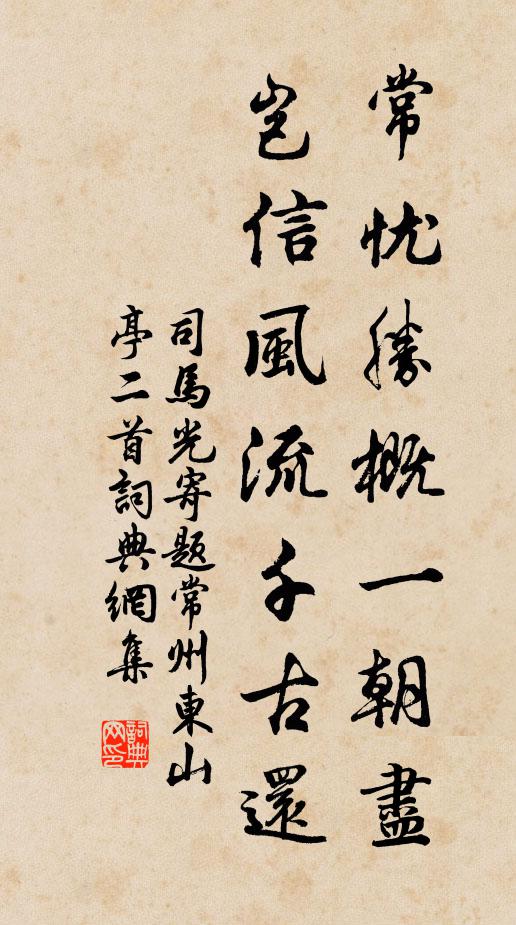 常忧勝概一朝盡
岂信風流千古還
司馬光寄题常州東山
亭二首詞典網集
詞典網印